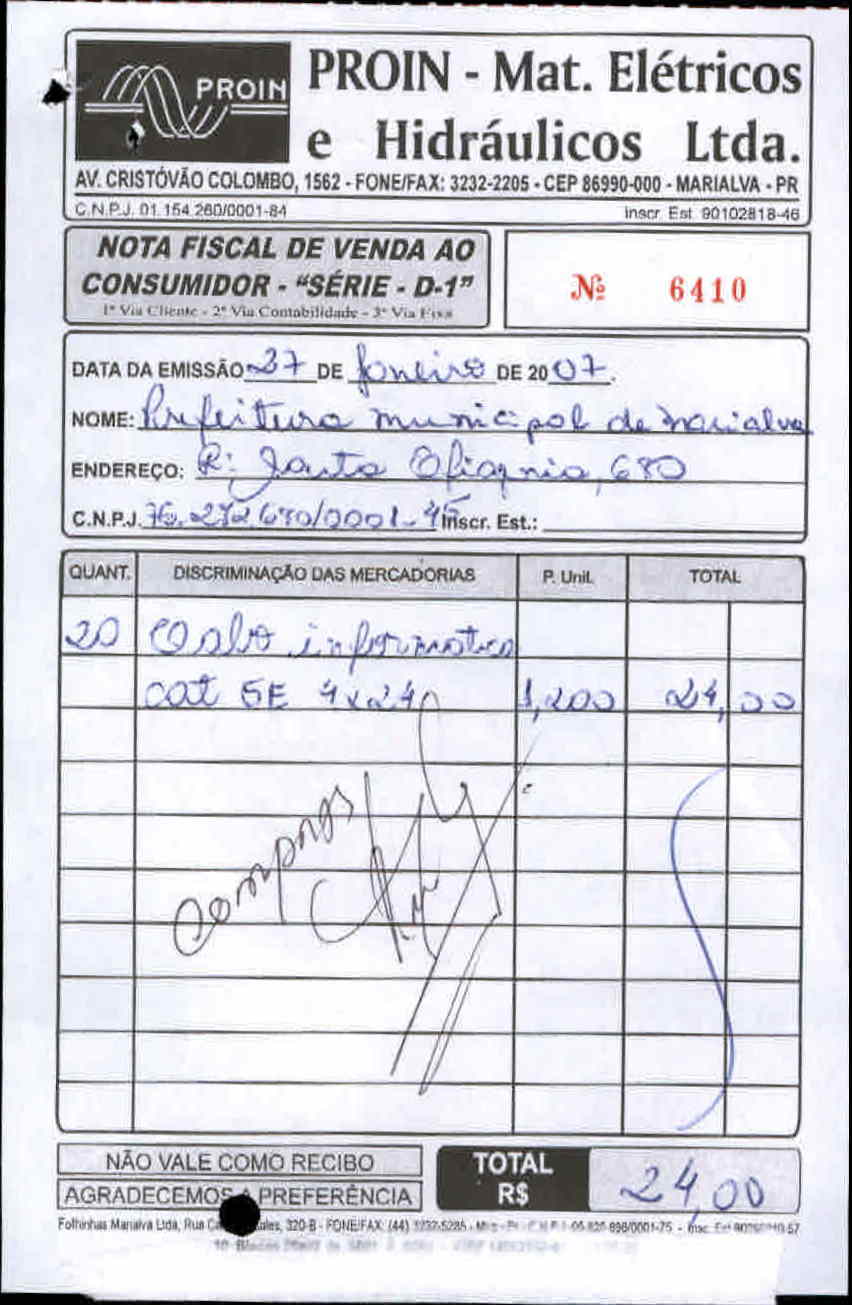 PROIN
PROIN - Mat. Elétricos
e Hidráulicos Ltda.
AV. CRISTÓVÃO COLOMBO, 1562 - FONE/FAX: 3232-2205 - CEP 86990-000 - MARIALVA - PR
C.N.P.J. 01.154.260/0001-84 Inscr. Est. 90102818-46
NOTA FISCAL DE VENDA AO
CONSUMIDOR - "SÉRIE - D-1"
1ª Via Cliente - 2ª Via Contabilidade - 3ª Via Fixa
Nº 6410
DATA DA EMISSÃO 27 DE Janeiro DE 2007.
NOME: Prefeitura municipal de marialva
ENDEREÇO: R: Santa Efigenia, 680
C.N.P.J. 76.272.680/0001-45 Inscr. Est.:
QUANT. DISCRIMINAÇÃO DAS MERCADORIAS P. Unit. TOTAL
20 Cabo informatica
cat 5E 4x24 1,200 24,00
compras
NÃO VALE COMO RECIBO
AGRADECEMOS A PREFERÊNCIA
TOTAL
R$ 24,00
Folhinhas Marialva Ltda, Rua 320-B - FONE/FAX: (44) 3232-5285